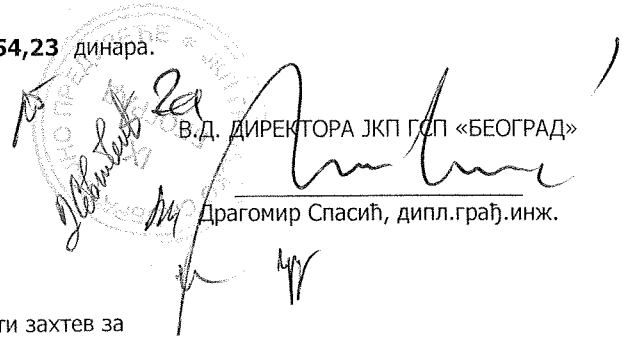 54,23 динара.
За
В.Д. ДИРЕКТОРА ЈКП ГСП «БЕОГРАД»
Драгомир Спасић, дипл.грађ.инж.
ти захтев за